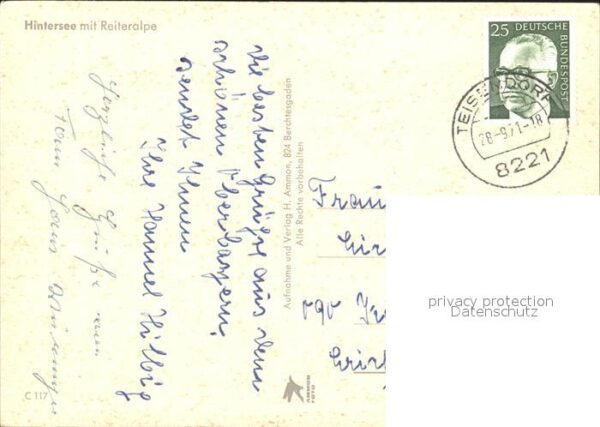 Hintersee mit Reiteralpe
die besten Grüße aus dem
schönen Oberbayern
sendet Ihnen
Ihre Hannel Hilbig
Herzliche Grüße
Aufnahme und Verlag H. Ammon, 824 Berchtesgaden
Alle Rechte vorbehalten
AMMON
FOTO
C 117
25
DEUTSCHE
BUNDESPOST
TEISENDORF
28-9.71-18
8221
Frau
privacy protection
Datenschutz